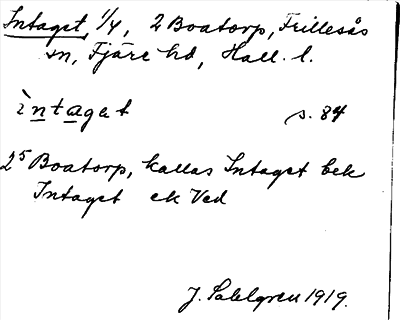 Intaget, 1/4, 2 Boatorp, Frillesås
sn, Fjäre hd, Hall. l.
ìntagat s. 84
2⁵ Boatorp, kallas Intaget bek
Intaget ek Ved
J. Sahlgren 1919.